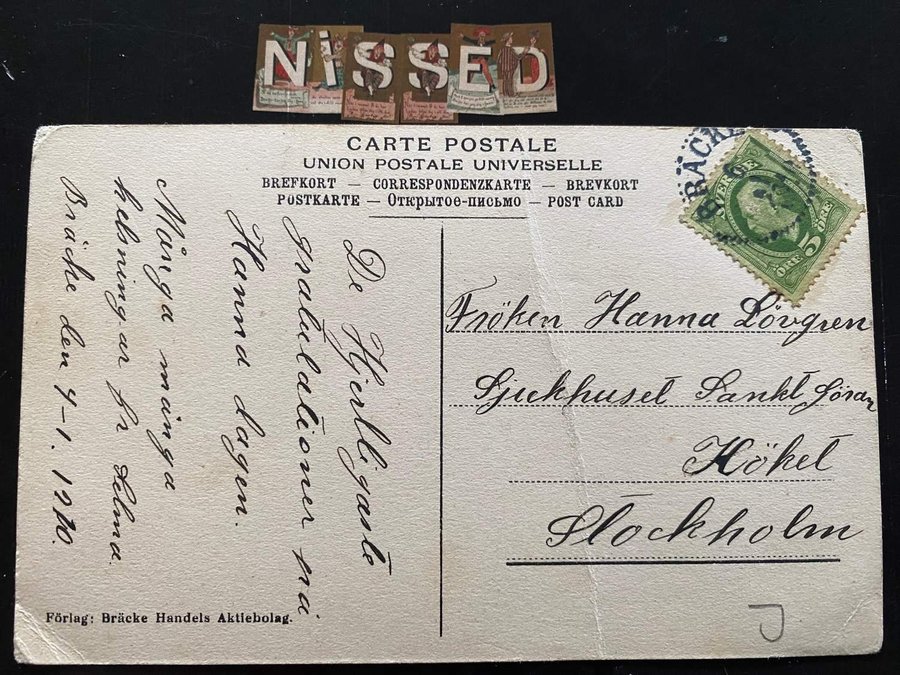 NiSSED
CARTE POSTALE
UNION POSTALE UNIVERSELLE
BREFKORT — CORRESPONDENZKARTE — BREVKORT
POSTKARTE — Открытое-письмо — POST CARD
BRÄCKE
SVERIGE
5 ÖRE
De Hjertligaste
gratulationer på
Hanna dagen.
Många många
helsningar fr Selma.
Bräcke den 4-1. 1910.
Fröken Hanna Lövgren
Sjukhuset Sankt Göran
Stockholm
Förlag: Bräcke Handels Aktiebolag.
J